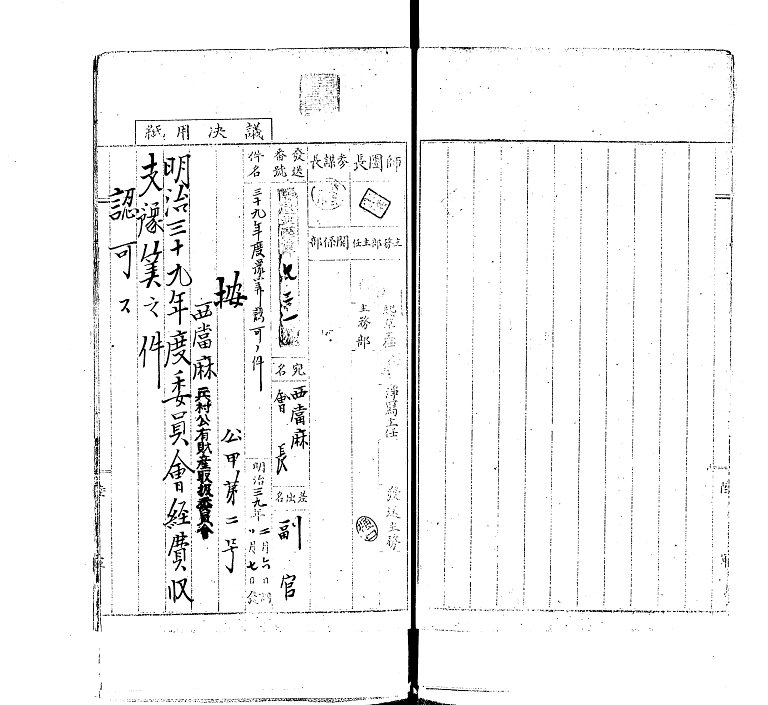 議決用紙
師團長
參謀長
主務部主任
關係部
主務部
淨寫主任
發送主務
發送番號
宛名
西當麻會長
差出名
副官
件名
三十九年度豫算認可ノ件
明治三九年二月六日
月七日
按
公甲第二号
西當麻兵村公有財産取扱委員會
明治三十九年度委員會経費収
支豫算之件
認可ス